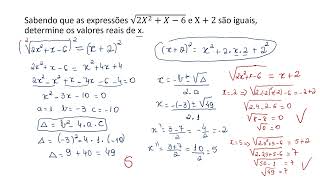 Sabendo que as expressões √2X² + X − 6 e X + 2 são iguais,
determine os valores reais de x.
(√2x²+x-6)² = (x+2)²
2x²+x-6 = x²+4x+4
2x²-x²+x-4x-6-4=0
x²-3x-10=0
a=1 b=-3 c=-10
Δ = b²-4.a.c
Δ = (-3)²-4.1.(-10)
Δ = 9+40 = 49
6
(x+2)² = x²+2.x.2+2²
x = -b±√Δ / 2.a
x = -(-3)±√49 / 2.1
x' = 3-7 / 2 = -4 / 2 = -2
x'' = 3+7 / 2 = 10 / 2 = 5
√2x²+x-6 = x+2
√2.4-2-6 = 0
√8-8 = 0
√0 = 0
√50-1 = 7
√49 = 7